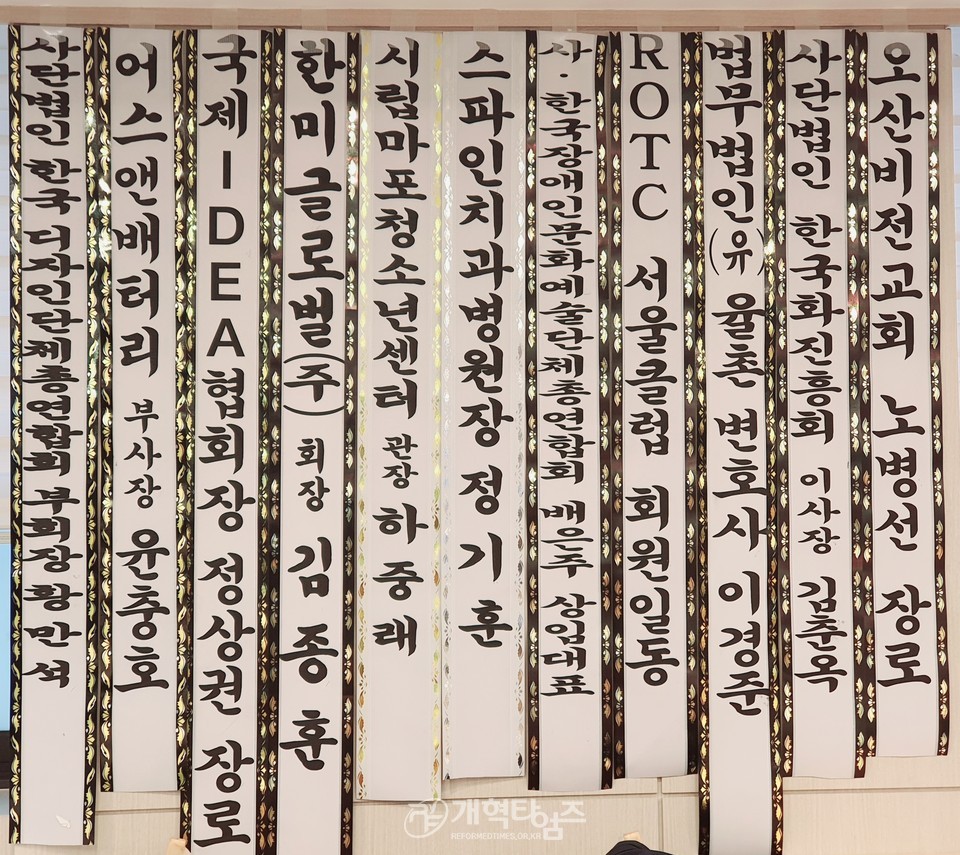 사단법인 한국 디자인단체총연합회 부회장 황 만 석
어스앤배터리 부사장 윤충호
국제 IDEA협회장 정상권 장로
한미글로벌(주) 회장 김 종 훈
시립마포청소년센터 관장 하 중 래
스파인치과병원장 정 기 훈
사·한국장애인문화예술단체총연합회 배은주 상임대표
ROTC 서울클럽 회원일동
법무법인(유) 율촌 변호사 이경준
사단법인 한국화진흥회 이사장 김춘옥
오산비전교회 노병선 장로
개혁타임즈
REFORMEDTIMES.OR.KR